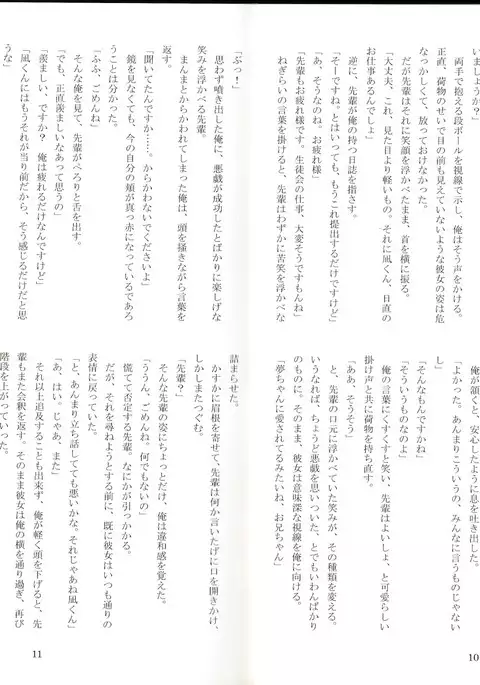 いましょうか?」
　両手で抱える段ボールを視線で示し、俺はそう声をかける。
正直、荷物のせいで目の前も見えていないような彼女の姿は危
なっかしくて、放っておけなかった。
　だが先輩はそれに笑顔を浮かべたまま、首を横に振る。
「大丈夫、これ、見た目より軽いもの。それに凪くん、日直の
お仕事あるんでしょ」
　逆に、先輩が俺の持つ日誌を指さす。
「そーですね。とはいっても、もうこれ提出するだけですけど」
「あ、そうなのね。お疲れ様」
「先輩もお疲れ様です。生徒会の仕事、大変そうですもんね」
　ねぎらいの言葉を掛けると、先輩はわずかに苦笑を浮かべな
　俺が頷くと、安心したように息を吐き出した。
「よかった。あんまりこういうの、みんなに言うものじゃない
し」
「そんなもんですかね」
「そういうものなのよ」
　俺の言葉にくすくすと笑い、先輩はよいしょ、と可愛らしい
掛け声と共に荷物を持ち直す。
「ああ、そうそう」
　と、先輩の口元に浮かべていた笑みが、その種類を変える。
いうなれば、ちょうど悪戯を思いついた、とでもいわんばかり
のものに。そのまま、彼女は意味深な視線を俺に向ける。
「夢ちゃんに愛されてるみたいね、お兄ちゃん」
10
「ぶっ!」
　思わず噴き出した俺に、悪戯が成功したとばかりに楽しげな
笑みを浮かべる先輩。
　まんまとからかわれてしまった俺は、頭を掻きながら言葉を
返す。
「聞いてたんですか……。からかわないでくださいよ」
　鏡を見なくても、今の自分の頬が真っ赤になっているであろ
うことは分かった。
「ふふ、ごめんね」
　そんな俺を見て、先輩がぺろりと舌を出す。
「でも、正直羨ましいなあって思うの」
「羨ましい、ですか?　俺は疲れるだけなんですけど」
「凪くんにはもうそれが当り前だから、そう感じるだけだと思
うな」
詰まらせた。
　かすかに眉根を寄せて、先輩は何か言いたげに口を開きかけ、
しかしまたつぐむ。
「先輩?」
　そんな先輩の姿にちょっとだけ、俺は違和感を覚えた。
「ううん、ごめんね。何でもないの」
　慌てて否定する先輩。なにか引っかかる。
　だが、それを尋ねようとする前に、既に彼女はいつも通りの
表情に戻っていた。
「と、あんまり立ち話してても悪いかな。それじゃあね凪くん」
「あ、はい。じゃあ、また」
　それ以上追及することも出来ず、俺が軽く頭を下げると、先
輩もまた会釈を返す。そのまま彼女は俺の横を通り過ぎ、再び
階段を上がっていった。
11